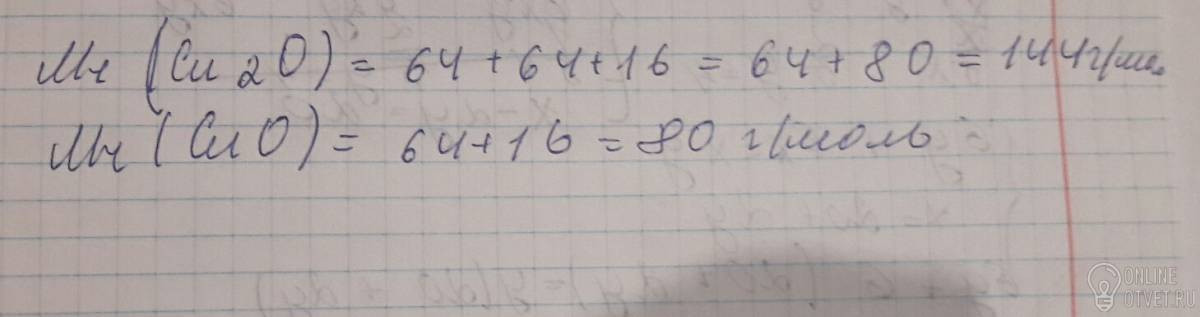 Mr (Cu2O) = 64+64+16 = 64+80 = 144г/мо
Mr (CuO) = 64+16 = 80 г/моль
ONLINE
OTVET.RU